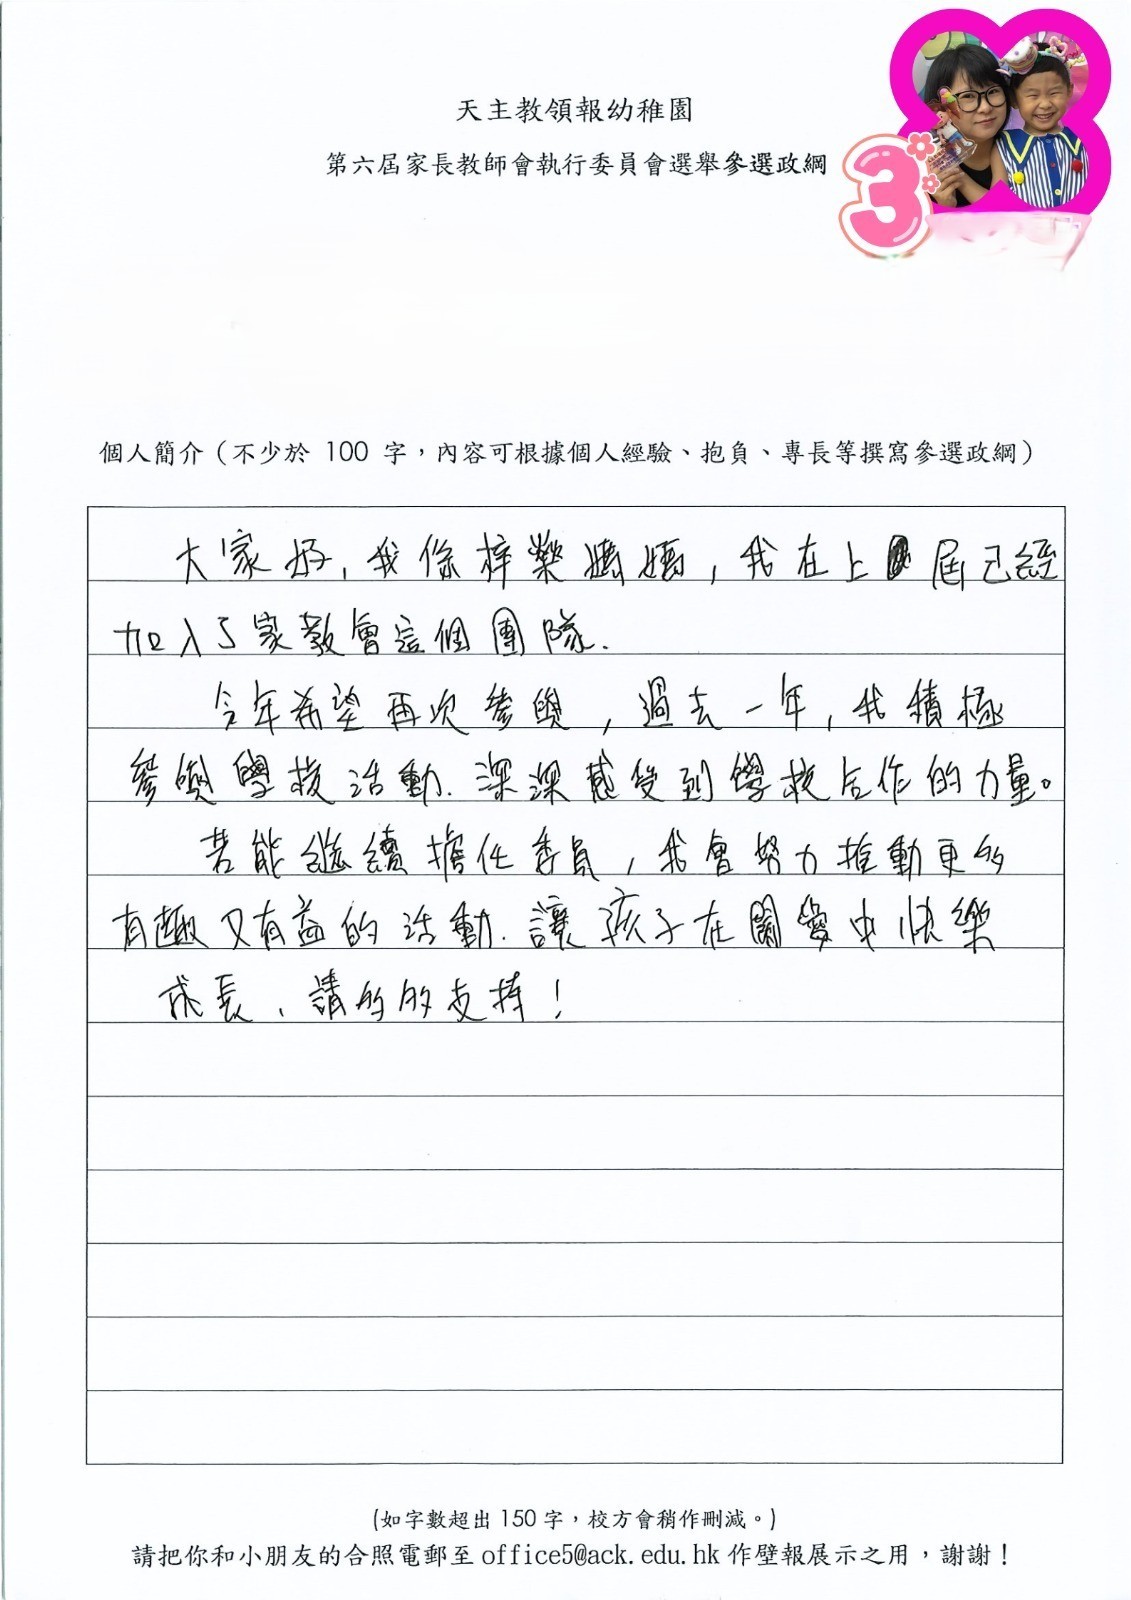 天主教領報幼稚園
第六屆家長教師會執行委員會選舉參選政綱
3
個人簡介（不少於 100 字，內容可根據個人經驗、抱負、專長等撰寫參選政綱）
大家好，我係梓榮媽媽，我在上屆已經
加入了家教會這個團隊.
今年希望再次參與，過去一年，我積極
參與學校活動.深深感受到學校合作的力量。
若能繼續擔任委員，我會努力推動更多
有趣又有益的活動.讓孩子在關愛中快樂
成長、請多多支持！
(如字數超出 150 字，校方會稍作刪減。)
請把你和小朋友的合照電郵至 office5@ack.edu.hk 作壁報展示之用，謝謝！